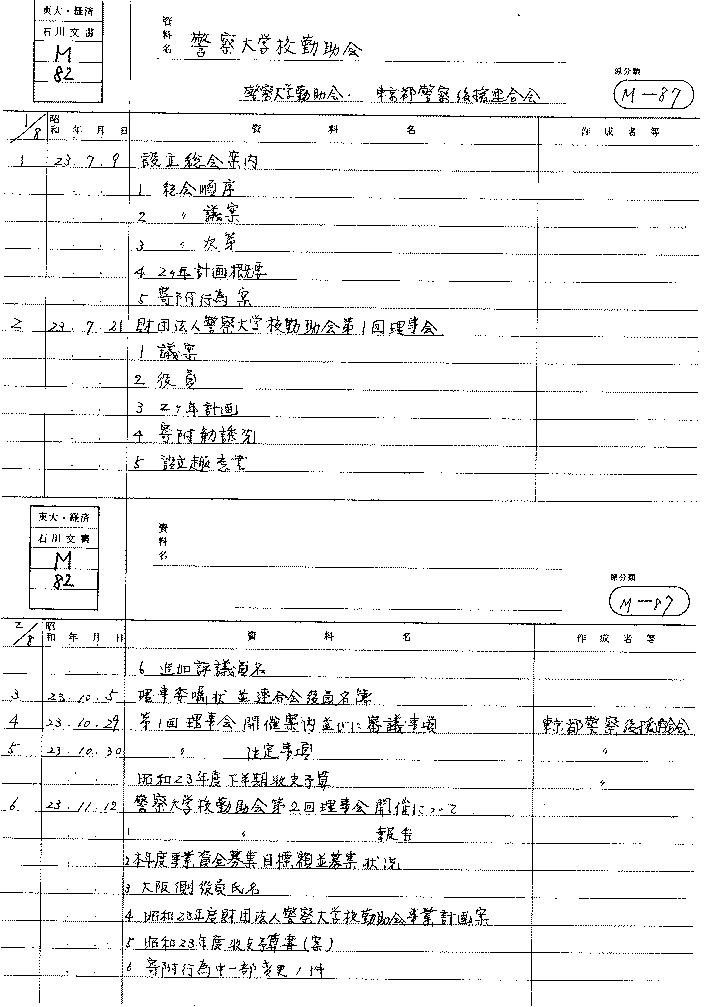 東大・経済
石川文書
M
82
資料名 警察大学校勤助会
警察大学勤助会・ 東京都警察後援連合会
原分類
M-87
1/8 昭和 年 月 日 資 料 名 作 成 者 等
1 23.7.9 設立総会案内
1 総会順序
2 〃 議案
3 〃 次第
4 24年計画概要
5 寄附行為案
2 23.7.21 財団法人警察大学校勤助会第1回理事会
1 議案
2 役員
3 24年計画
4 寄附勧誘先
5 設立趣意書
東大・経済
石川文書
M
82
資料名
原分類
M-87
2/8 昭和 年 月 日 資 料 名 作 成 者 等
6 追加評議員名
3 23.10.5 理事委嘱状並連合会役員名簿
4 23.10.29 第1回理事会開催案内並びに審議事項 東京都警察後援連合会
5 23.10.30 〃 決定事項 〃
昭和23年度下半期収支予算 〃
6 23.11.12 警察大学校勤助会第2回理事会開催について
1 〃 報告
2 本年度事業資金募集目標額並募集状況
3 大阪側役員氏名
4 昭和23年度財団法人警察大学校勤助会事業計画案
5 昭和23年度収支予算書(案)
6 寄附行為中一部変更ノ件